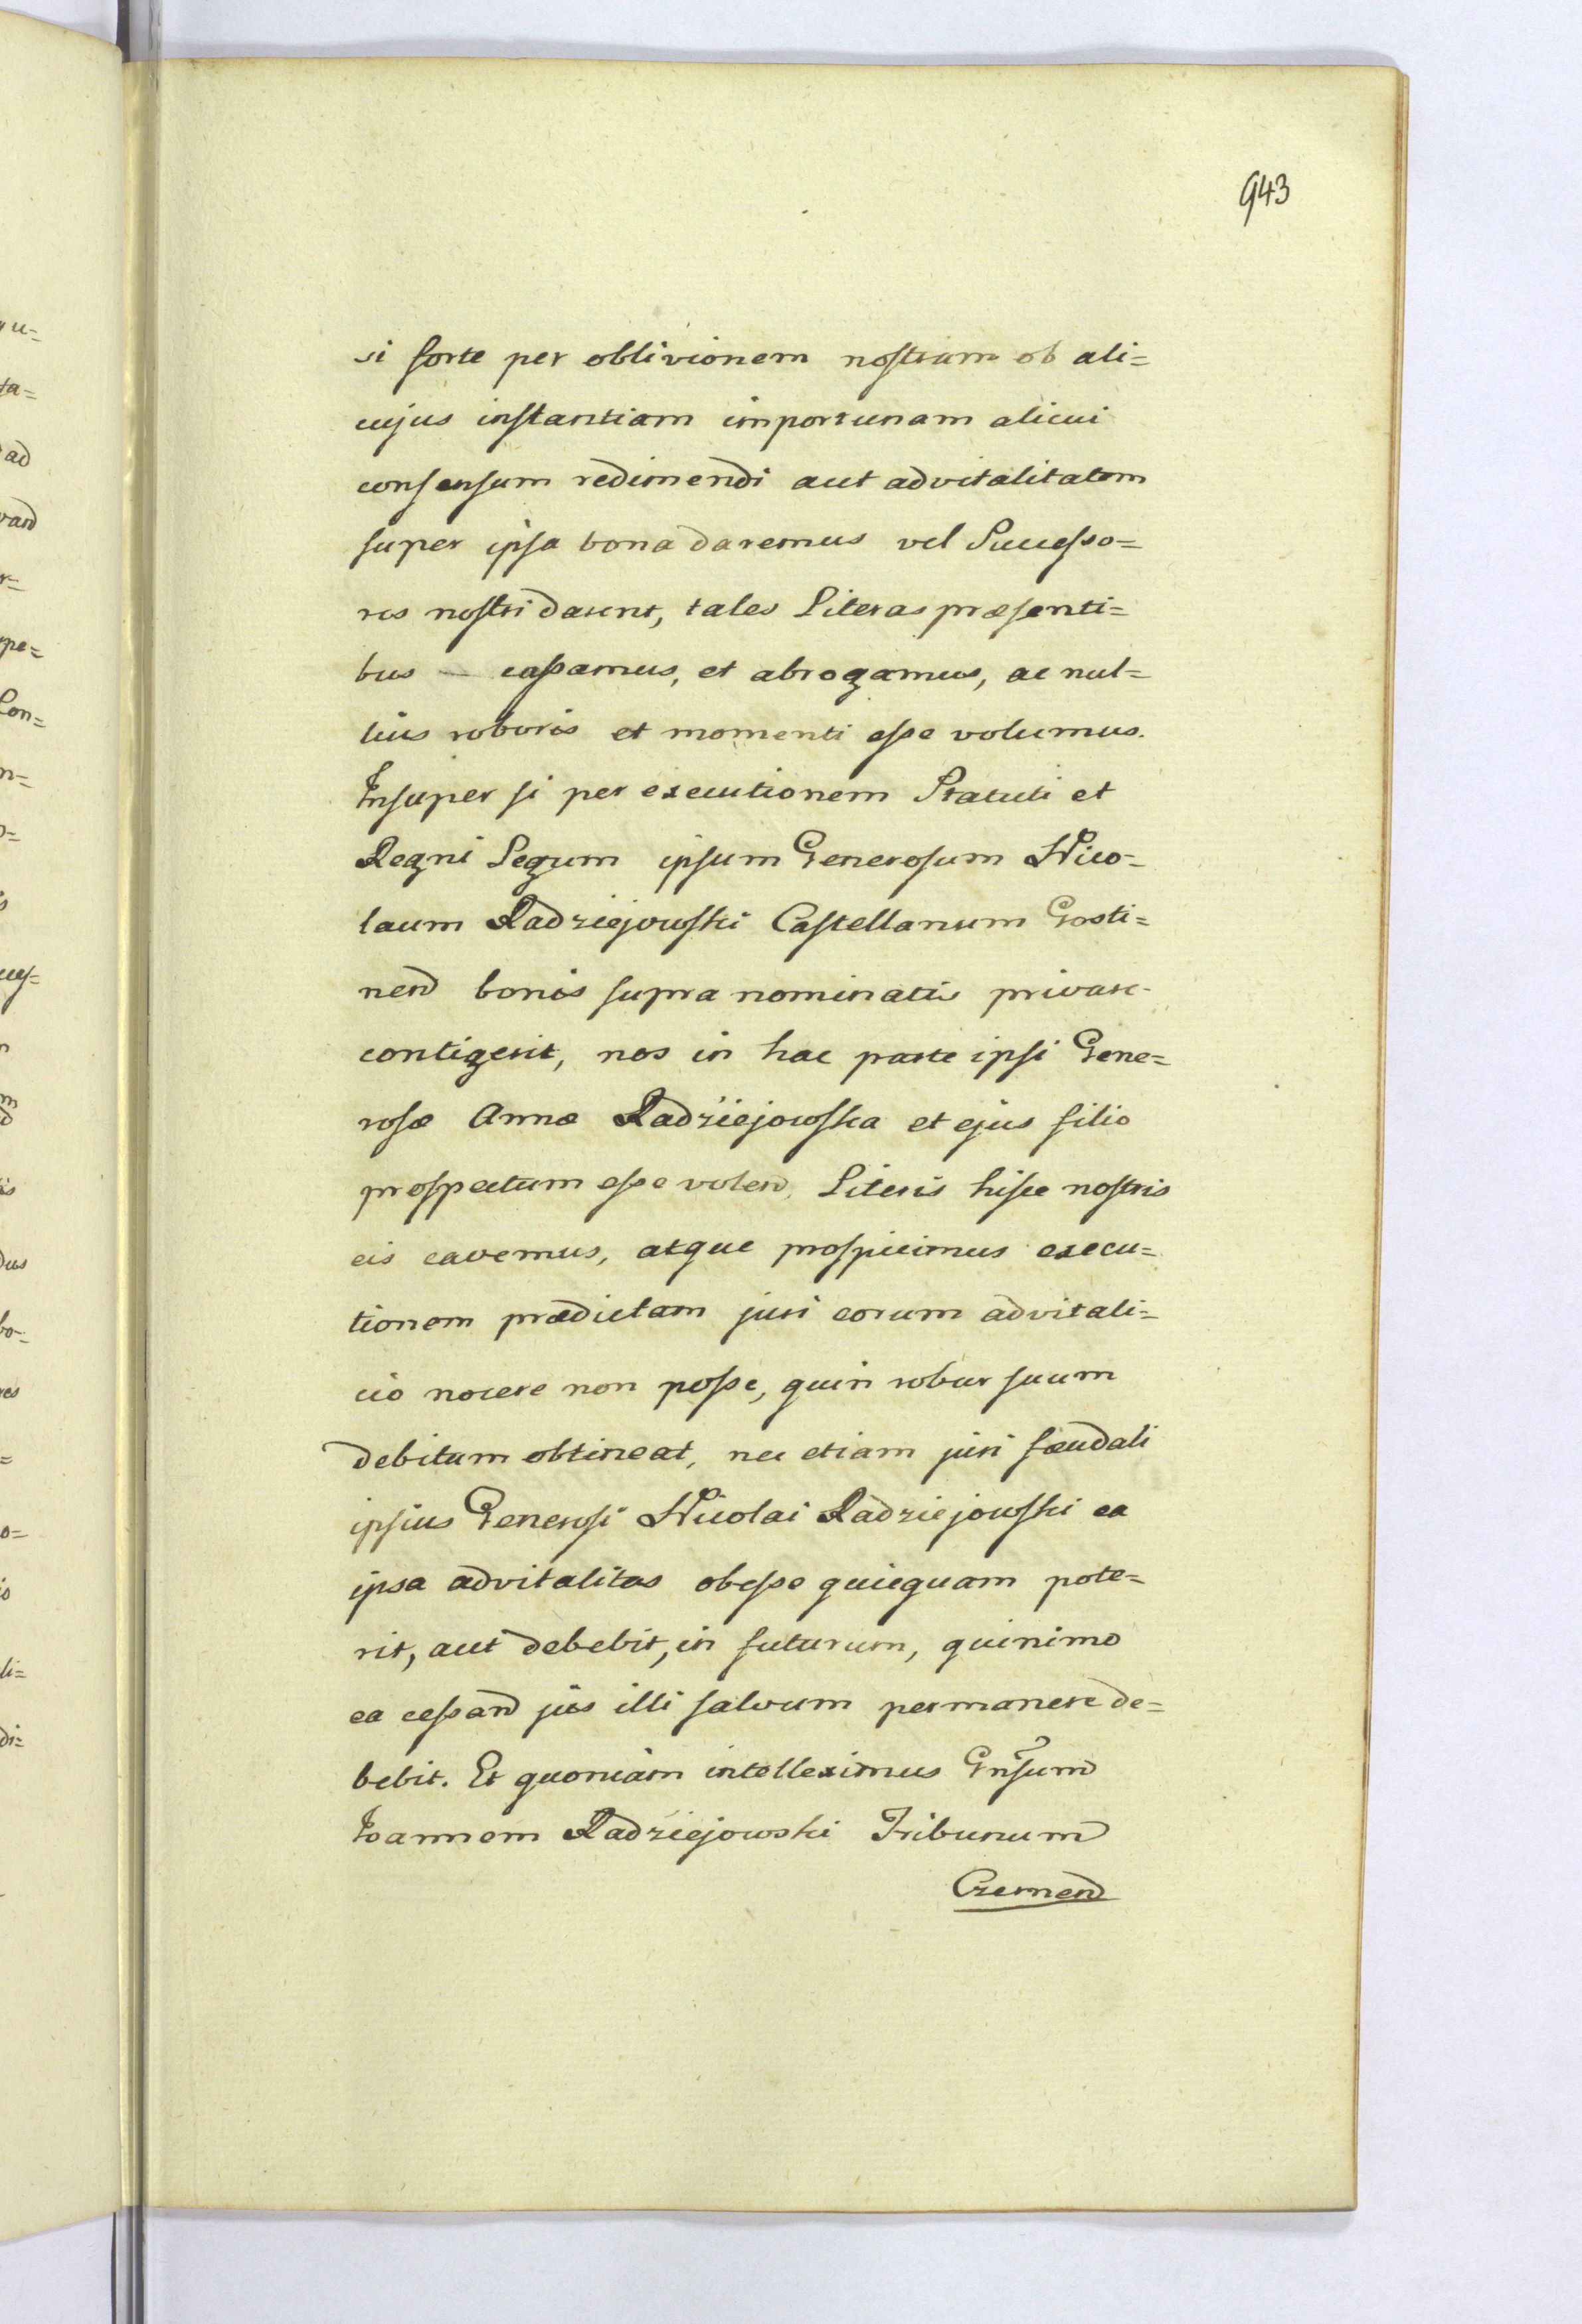 943
si forte per oblivionem nostram ob ali=
cujus instantiam importunam alicui
consensum redimendi aut advitalitatem
super ipsa bona daremus vel Successo=
res nostri darent, tales Literas præsenti=
bus — cassamus, et abrogamus, ac nul=
lius roboris et momenti esse volumus.
Insuper si per executionem Statuti et
Regni Legum ipsum Generosum Nico=
laum Radziejowski Castellanum Gosti=
nen bonis supra nominatis privare
contigerit, nos in hac parte ipsi Gene=
rosæ Annæ Radziejowska et ejus filio
prospectum esse volen, Literis hisce nostris
eis cavemus, atque prospicimus execu=
tionem prædictam juri eorum advitali=
cio nocere non posse, quin robur suum
debitum obtineat, nec etiam juri fœudali
ipsius Generosi Nicolai Radziejowski ea
ipsa advitalitas obesse quicquam pote=
rit, aut debebit, in futurum, quinimo
ea cessan jus illi salvum permanere de=
bebit. Et quoniam intelleximus Gnsum
Joannem Radziejowski Tribunum
Czernen